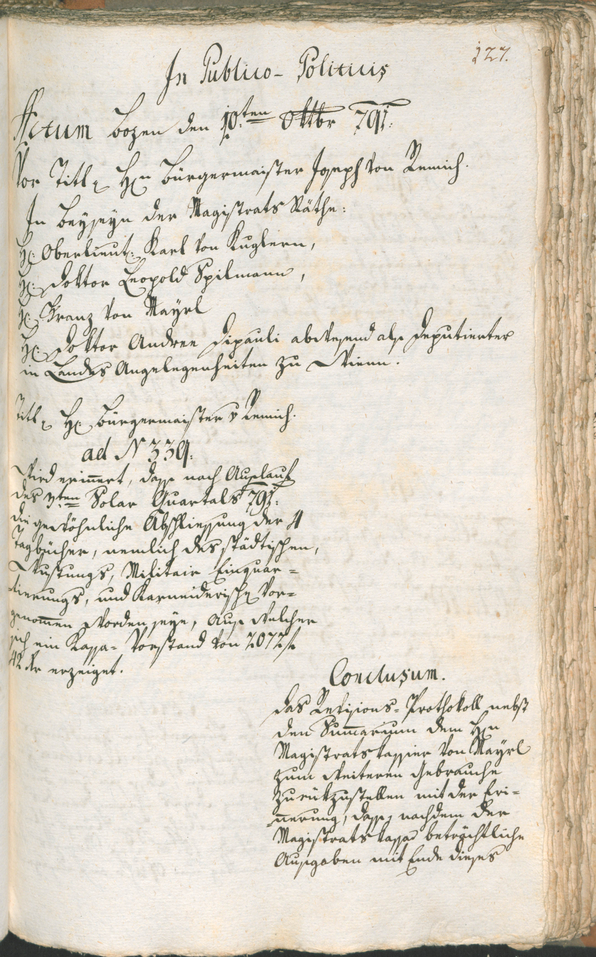 127.
In Publico-Politicis
Actum Bozen den 10ten Oktbr 791:
Vor Titl. Hn Bürgermaister Joseph von Remich.
In Beyseyn der Magistrats Räthe:
H: Oberlieut: Karl von Kuglern,
H: Doktor Leopold Spilmann,
H: Franz von Mayrl
H: Doktor Andree Dipauli abwesend als Deputierter
in Landes Angelegenheiten zu Wienn.
Titl. H: Bürgermaister v Remich.
ad N 339.
Wird erinnert, dass nach Auslauf
des 3ten Solar Quartals 791:
die gewöhnliche Abschliessung der 4
Tagbücher, nemlich des städtischen,
Rustungs, Militair Einquar-
tierungs, und Karneiderische vor-
genommen worden seye, Aus welcher
sich ein Kassa-Vorstand von 2072 f
42 kr erzeiget.
Conclusum.
Das Revisions-Prothokoll nebst
den Summarium dem Hn
Magistratskassier von Mayrl
zum weiteren Gebrauche
zurückzustellen mit der Erin-
nerung, dass, nachdem der
Magistratskassa beträchtliche
Ausgaben mit Ende dieses